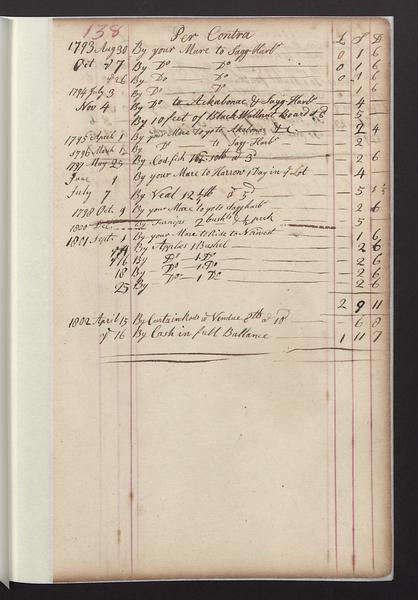 138
Per Contra £ S D
1793 Aug 30 By your Mare to Sagg Harbr 0 1 6
Oct 7 By Do Do 0 1 6
26 By Do Do 0 1 6
1794 July 3 By Do Do 1 6
Nov 4 By Do to Ackabonac & Sagg Harbr 4
By 10 feet of Black Wallnut Board 5
1795 April 1 By your Mare to go to & c. 2 4
1796 March By Do to Sagg Harbr 2
1797 May 25 By Codfish 10 lb a 3d 2 6
June 1 By your Mare to Harrow 1 Day in Lot 4
July 7 By Veal 12 lb a 5d 5
1798 Oct. 9 By your Mare to go to Saggharbr 2 6
1800 Dec By Turnips 2 bushels & peck 5
1801 Sept. 1 By your Mare to Ride to 1 6
By Apples 1 Bushel 2 6
16 By Do 1 Do 2 6
18 By Do 1 Do 2 6
25 By Do 1 Do 2 6
2 9 11
1802 April 15 By Curtain Rods a Vendue 8 lb a 10d 6 8
16 By Cash in full Ballance 1 11 7